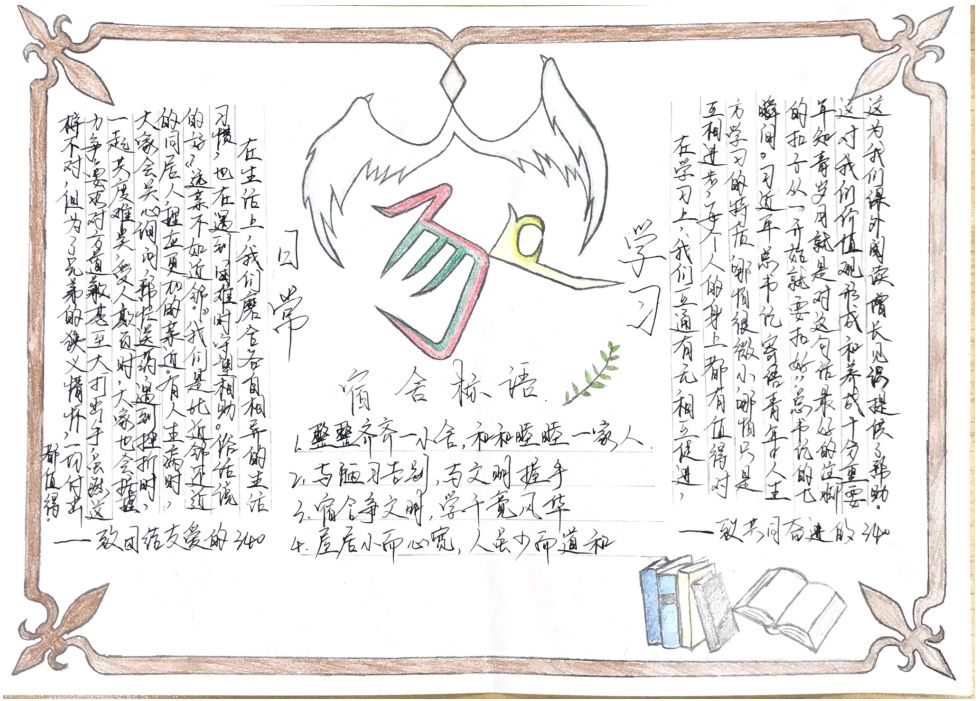 学习
日常
在学习上,我们互通有无相互促进,
互相进步。每个人的身上都有值得对
方学习的特质哪怕很微小,哪怕只是
瞬间。习近平总书记寄语青年"人生
的扣子从一开始就要扣好"总书记的七
年知青岁月就是对这句话最好的注脚
这对我们价值观形成和养成十分重要
这为我们课外阅读增长见识提供了帮助。
——致共同奋进的340
在生活上,我们磨合各自相异的生活
习惯,也在遇到困难时守望相助。俗话说
的好"远亲不如近邻"我们是比近邻还近
的同居人,更加的亲近有人生病时,
大家会关心询问,帮忙送药,遇到挫折时,
一起共度难关,受人欺负时,大家也会据理
力争,要求对方道歉甚至大打出手,虽然这
样不对,但为了兄弟的狭义情怀,一切付出
都值得。
——致团结友爱的340
宿舍标语
1.整整齐齐一小舍,和和睦睦一家人
2.与陋习告别,与文明握手
3.宿舍争文明,学子竞风华
4.屋居小而心宽,人虽少而道和